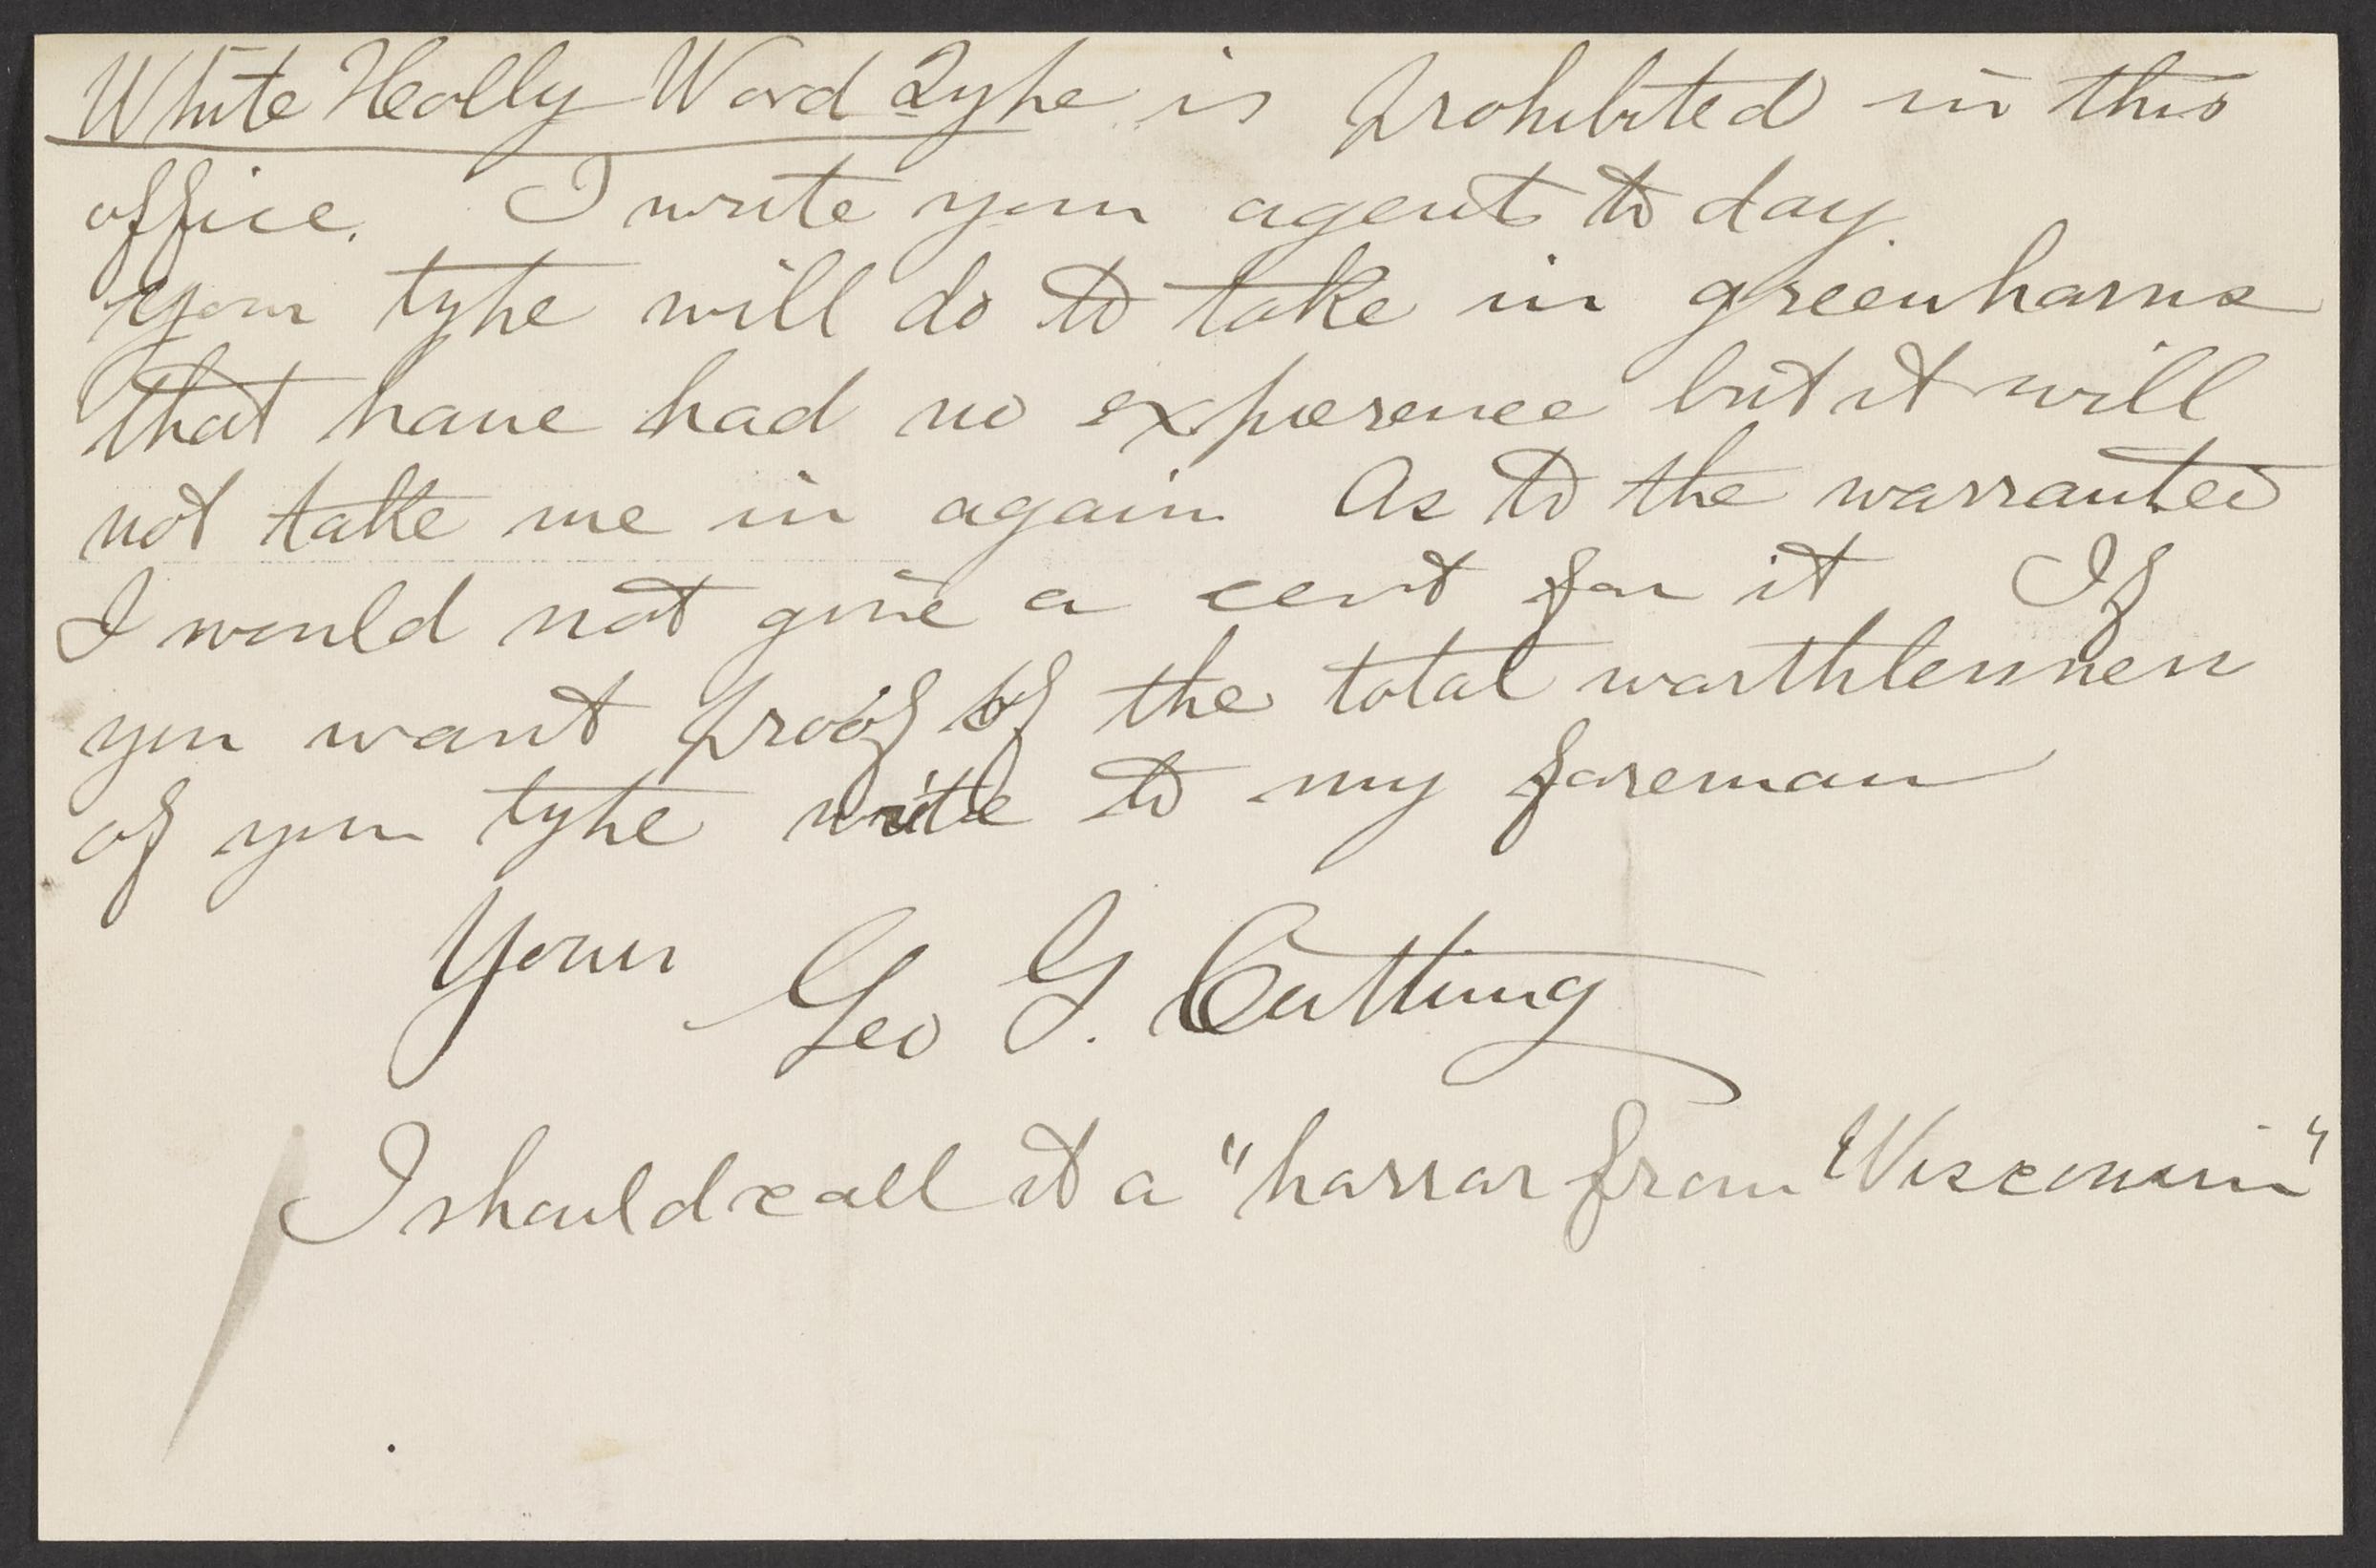 White Holly Wood Type is prohibited in this
office. I write your agent to day.
Your type will do to take in greenhorns
that have had no experence but it will
not take me in again. As to the warrantee
I would not give a cent for it If
you want proof of the total worthlessness
of your type write to my foreman
Yours Geo G. Cutting
I should call it a "horror from Wisconsin"